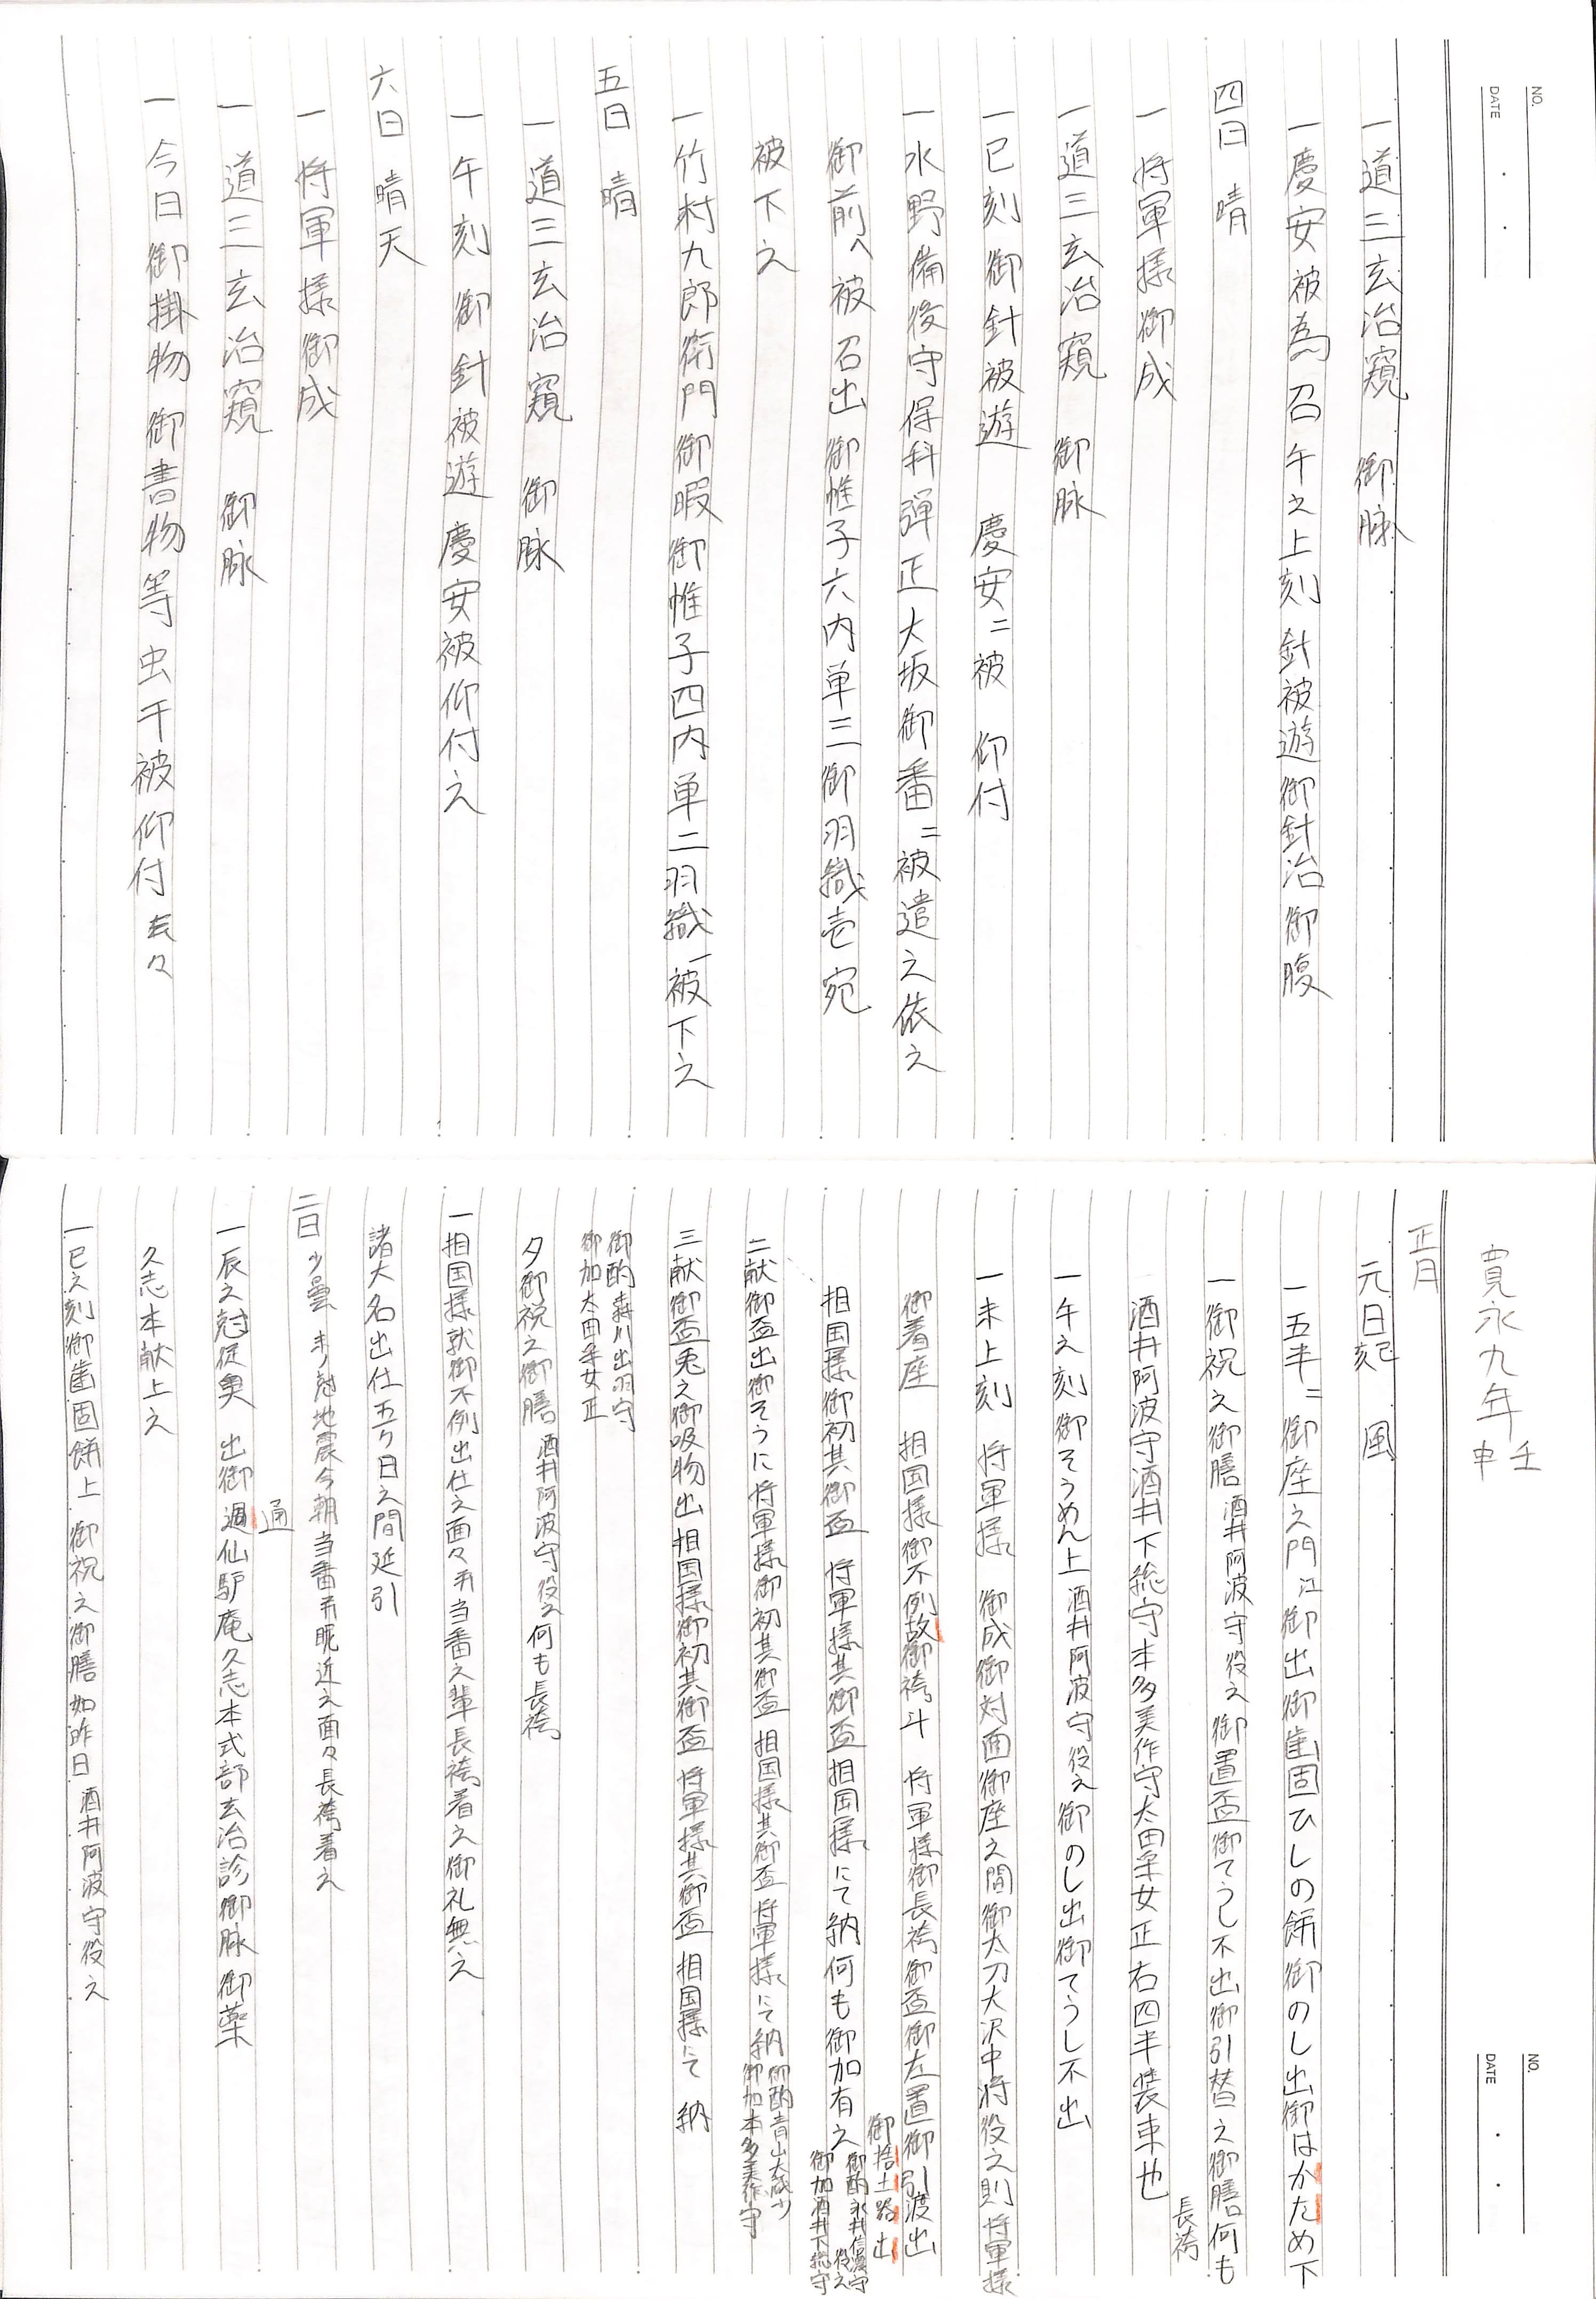 NO.
DATE
一道三玄冶窺　御脉
一慶安被為召午之上刻針被遊御針治御腹
四日　晴
一　将軍様御成
一道三玄冶窺　御脉
一巳刻御針被遊　慶安ニ被　仰付
一水野備後守保科弾正大坂御番ニ被遣之依之
御前へ被召出御帷子六内単三御羽織壱宛
被下之
一竹村九郎衛門御暇御帷子四内単二羽織一被下之
五日　晴
一道三玄冶窺　御脉
一午刻御針被遊慶安被仰付之
六日　晴天
一　将軍様御成
一　道三玄冶窺　御脉
一　今日御掛物御書物等虫干被仰付云々
NO.
DATE
寛永九年壬申
正月
元日　風
一五半ニ御座之門江御出御歯固ひしの餅御のし出御はかため下
一御祝之御膳酒井阿波守役之御置盃御てうし不出御引替之御膳何も長袴
酒井阿波守酒井下総守本多美作守太田采女正右四半装束也
一午之刻御そうめん上酒井阿波守役之御のし出御てうし不出
一未上刻　将軍様　御成御対面御座之間御太刀大沢中将役之則将軍様
御着座　相国様御不例故御袴斗　将軍様御長袴御盃御左置御引渡出
御捨土器出
相国様御初其御盃　将軍様其御盃相国様にて納何も御加有之御酌永井信濃守役之御加酒井下総守
二献御盃出御そうに将軍様御初其御盃相国様其御盃将軍様にて納御酌青山大蔵少御加本多美作守
三献御盃兎之御吸物出相国様御初其御盃将軍様其御盃相国様にて納
御酌森川出羽守
御加太田采女正
夕御祝之御膳酒井阿波守役之何も長袴
一相国様就御不例出仕之面々并当番之輩長袴着之御礼無之
諸大名出仕五ケ日之間延引
二日　少曇　地震今朝当番并昵近之面々長袴着之
一辰之刻従奥　出御週仙驴庵久志本式部玄冶診御脉御薬
通
久志本献上之
一巳之刻御歯固餅上御祝之御膳如昨日酒井阿波守役之